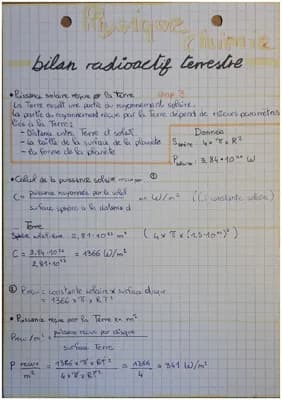 Physique
chimie
bilan radioactif terrestre
• Puissance solaire reçue par la Terre
chap 3
La Terre reçoit une partie du rayonnement solaire.
La partie du rayonnement solaire reçue par la Terre dépend de plusieurs paramètres
liés à la Terre :
- Distance entre Terre et soleil
- la taille de la surface de la planète
- la forme de la planète
Données
S sphère : 4 × π × R²
P solaire : 3.84 • 10²⁶ W
• Calcul de la puissance solaire ①
C = puissance rayonnée par le soleil
surface sphère à la distance d
en W/m² (C : constante solaire)
Terre
= 2,81 • 10²³ m² ( 4 × π × (1.5 • 10¹¹)² )
C = 3.84 • 10²⁶ = 1366 W/m²
2,81 • 10²³
② P reçu = constante solaire × surface disque
= 1366 × π × RT²
• Puissance reçue par la Terre en m²
P reçu / m² = puissance reçue par disque
surface Terre
P reçue = 1366 × π × RT² = 1366 = 341 W/m²
m² 4 × π × RT² 4